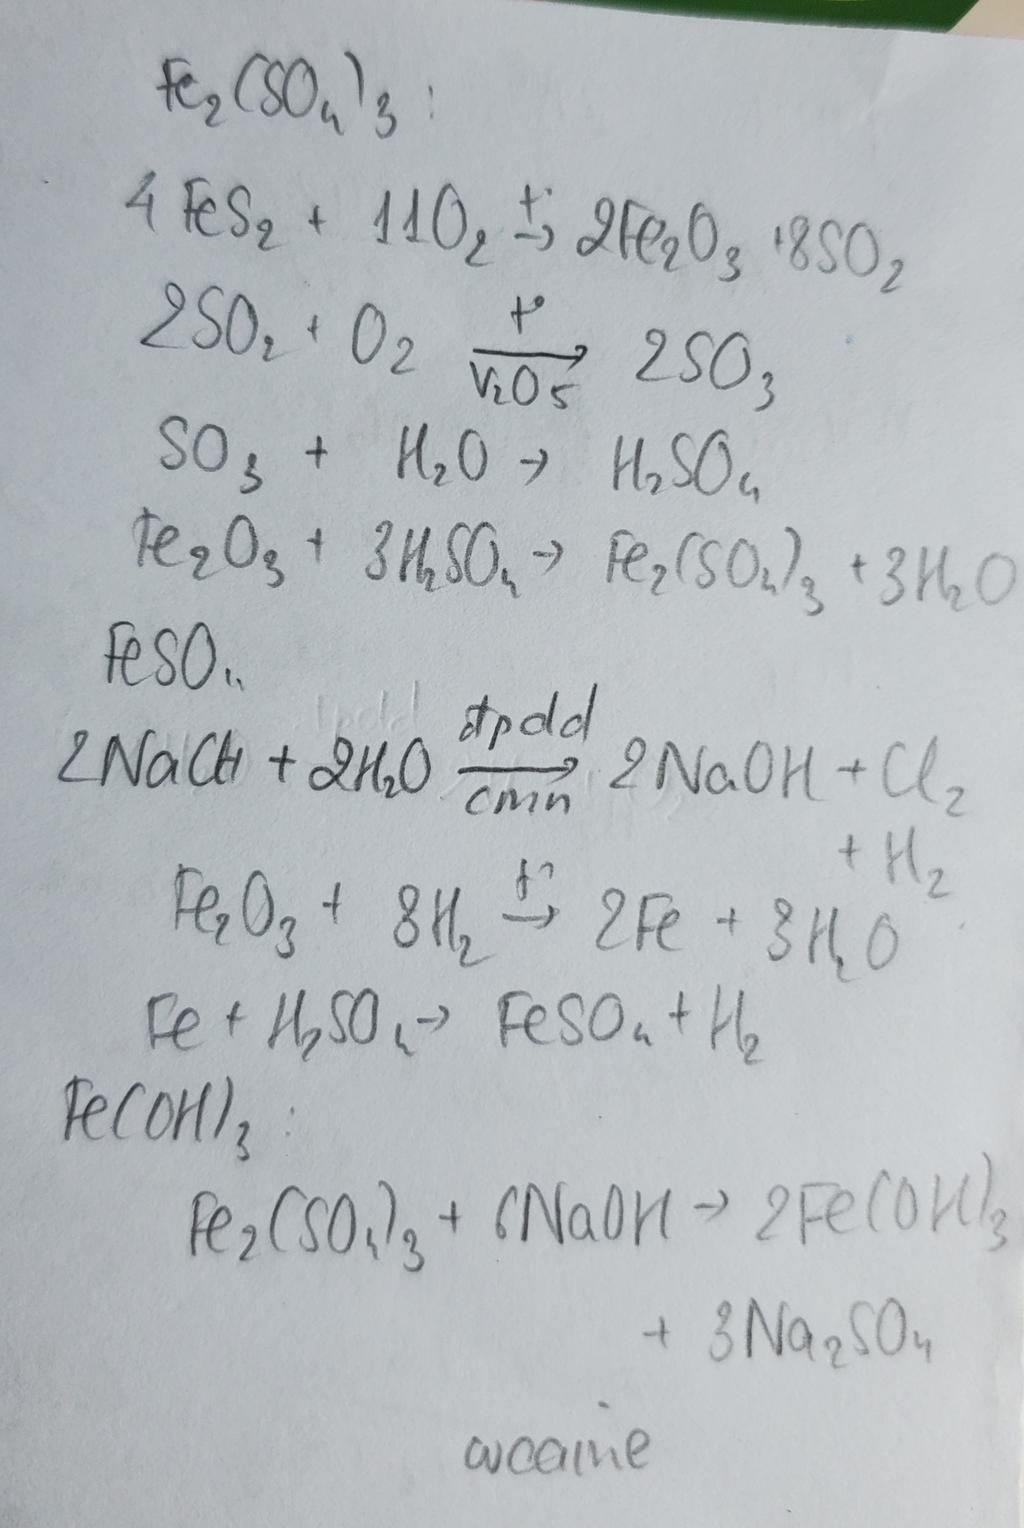 Fe₂(SO₄)₃:
4 FeS₂ + 11O₂ t°→ 2Fe₂O₃ + 8SO₂
2SO₂ + O₂ t°→ V₂O₅ 2SO₃
SO₃ + H₂O → H₂SO₄
Fe₂O₃ + 3H₂SO₄ → Fe₂(SO₄)₃ + 3H₂O
FeSO₄:
2NaCl + 2H₂O đpdd→ cmn 2NaOH + Cl₂
+ H₂
Fe₂O₃ + 3H₂ t°→ 2Fe + 3H₂O
Fe + H₂SO₄ → FeSO₄ + H₂
Fe(OH)₃:
Fe₂(SO₄)₃ + 6NaOH → 2Fe(OH)₃
+ 3Na₂SO₄